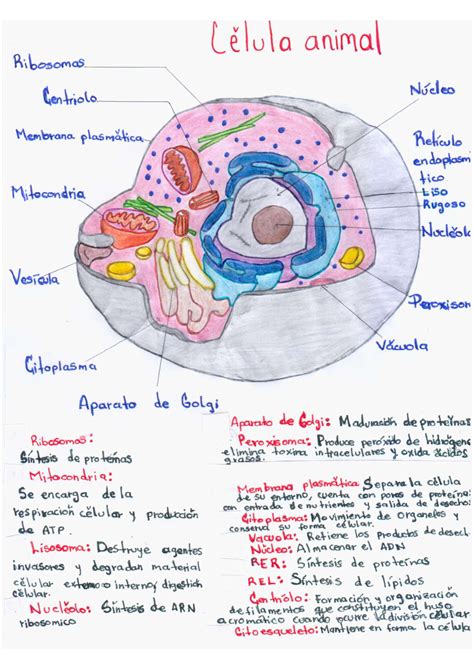 Célula animal
Ribosomas
Centriolo
Membrana plasmática
Mitocondria
Vesícula
Citoplasma
Aparato de Golgi
Núcleo
Retículo
endoplasmá
tico
Liso
Rugoso
Nucléolo
Peroxisom
Vacuola
Ribosomas:
Síntesis de proteínas
Mitocondria:
Se encarga de la
respiración célular y producción
de ATP.
Lisosoma: Destruye agentes
invasores y degradan material
célular externo o interno/digestich
célular.
Nucléolo: Síntesis de ARN
ribosomico
Aparato de Golgi: Maduración de proteínas
Peroxisoma: Produce peróxido de hidrógeno
elimina toxina intracelulares y oxida ácidos
grasos.
Membrana plasmática: Separa la célula
de su entorno, cuenta con poros de proteína:
con entrada de nutrientes y salida de desecho:
Citoplasma: Movimiento de organelos y
conserva su forma célular.
Vacuola: Retiene los productos de desecl
Núcleo: Almacenar el ADN
RER: Síntesis de proteínas
REL: Síntesis de lípidos
Centríolo: Formación y organización
de filamentos que constituyen el huso
acromático cuando ocurre la división célular
Citoesqueleto: Mantiene en forma la célula